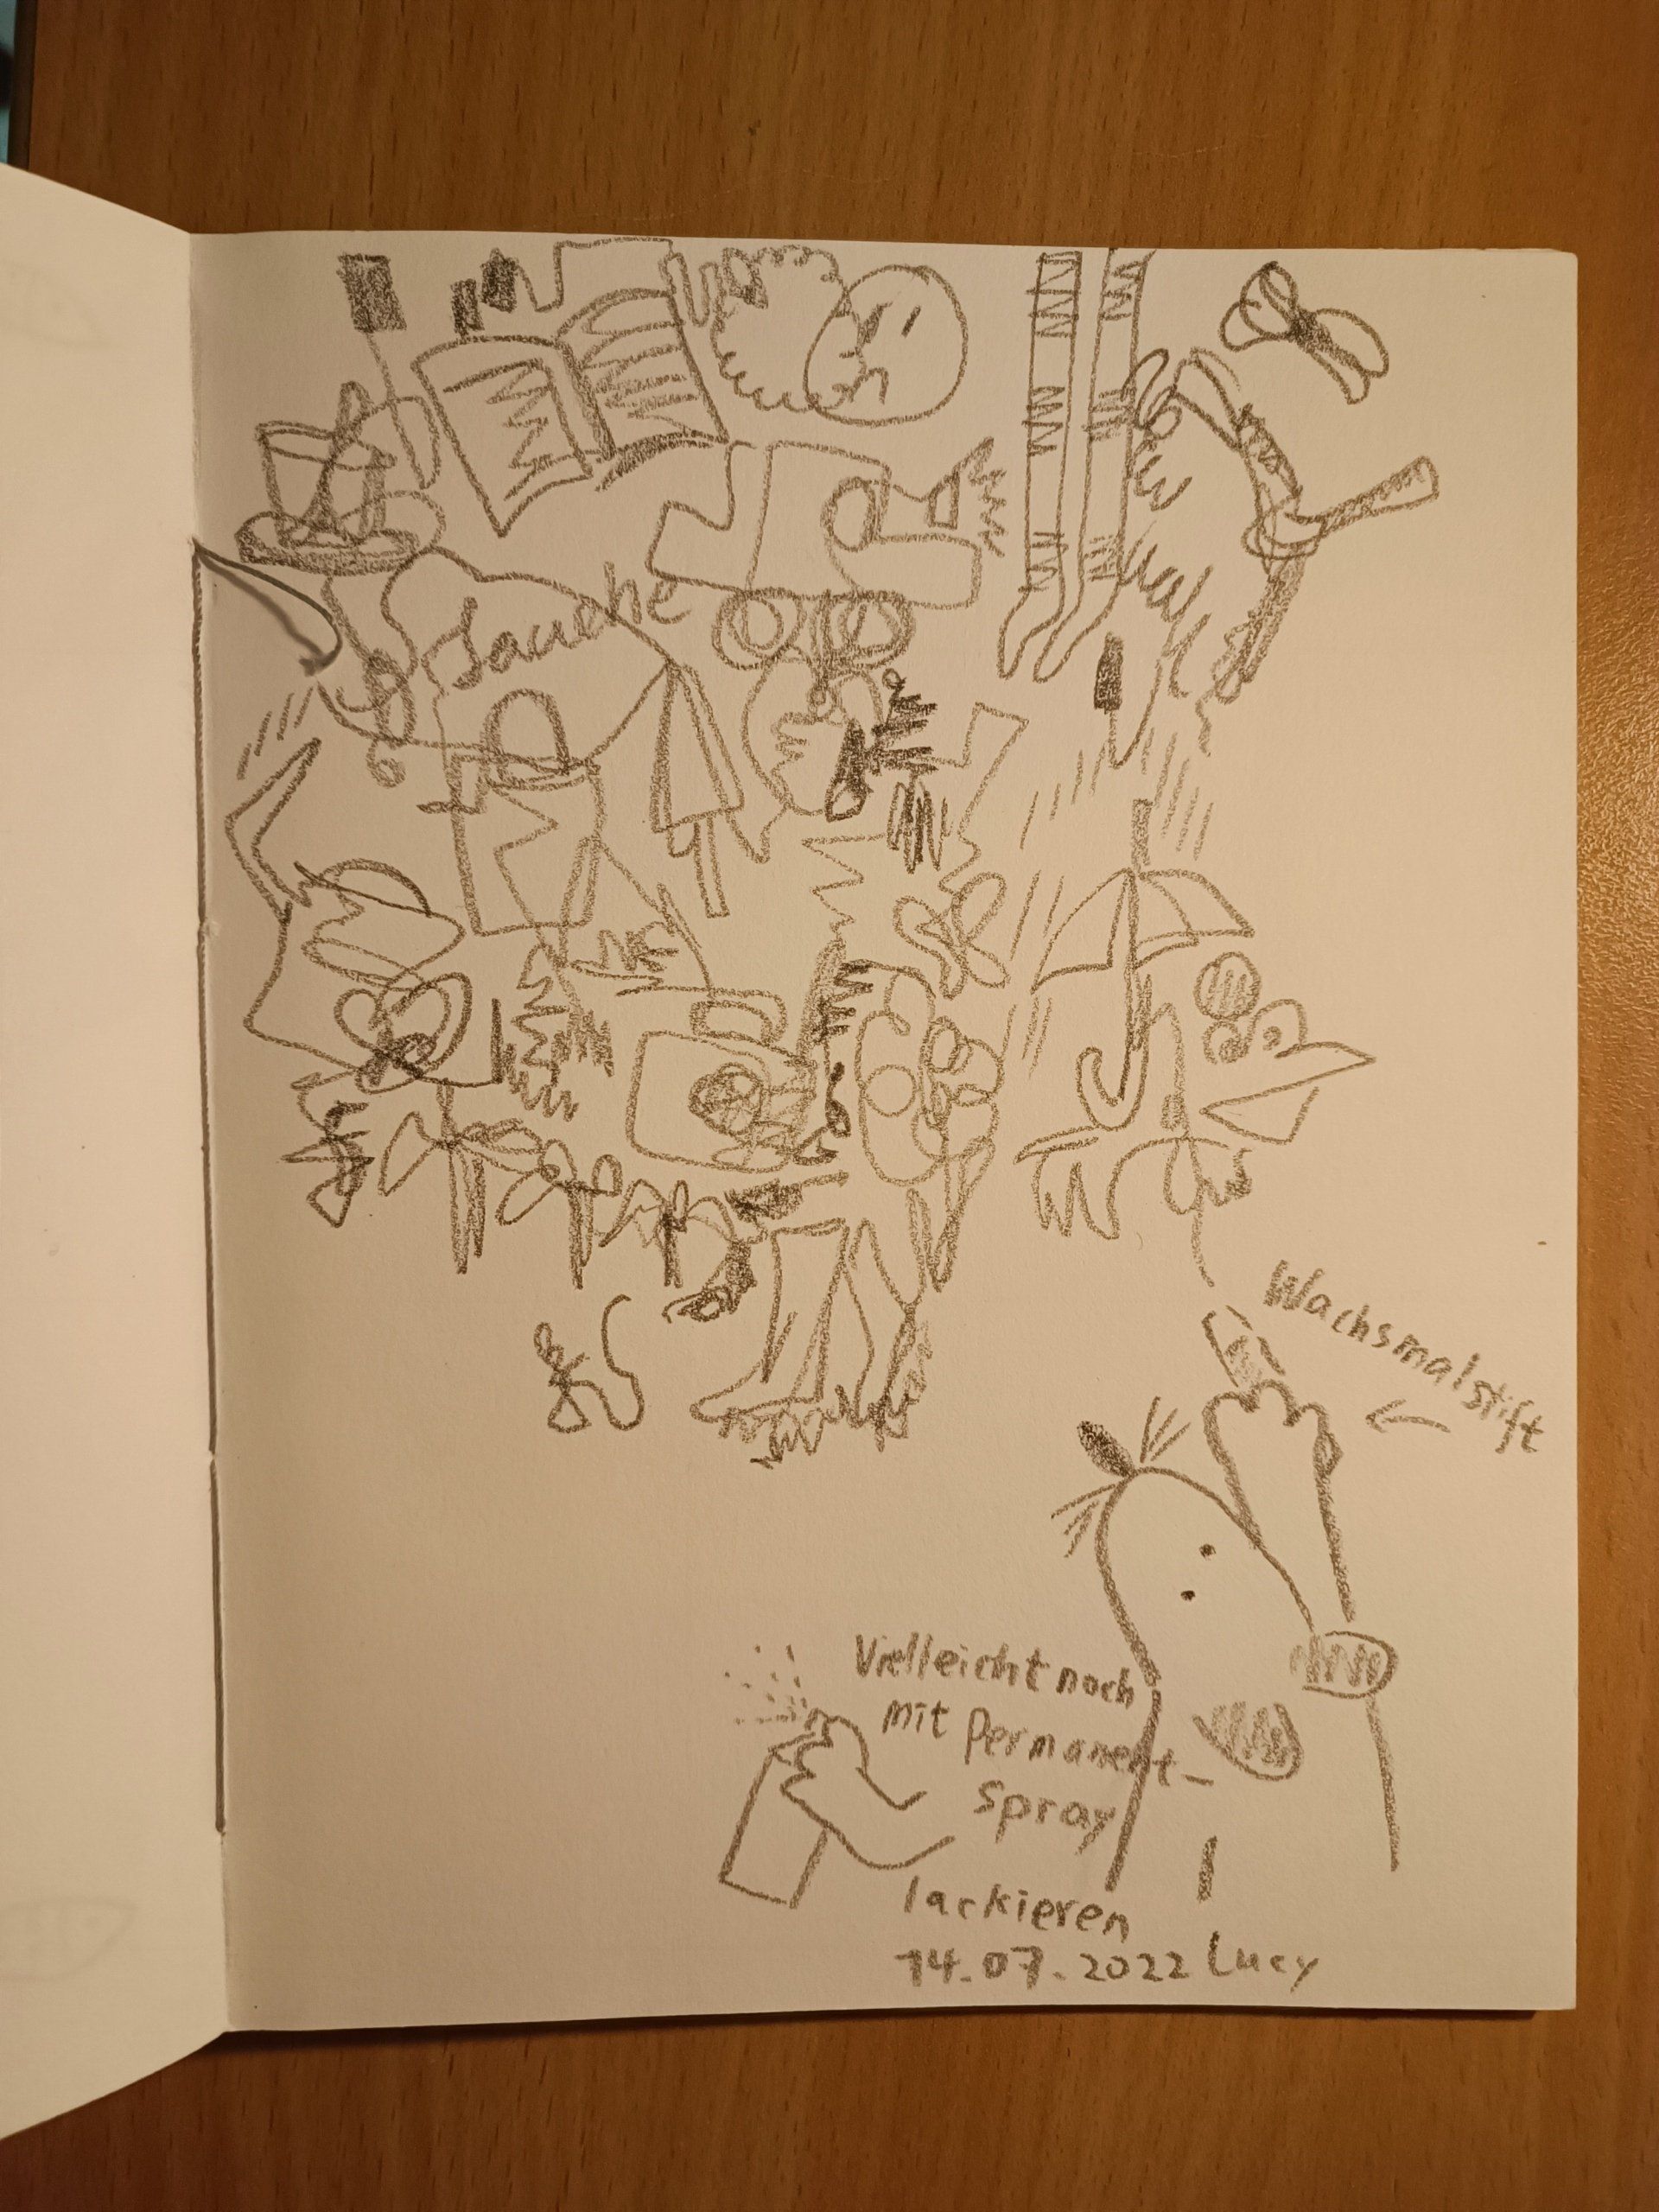 Jauche
Wachsmalstift
Vielleicht noch
mit Permanent-
spray
lackieren
14.07.2022 Lucy